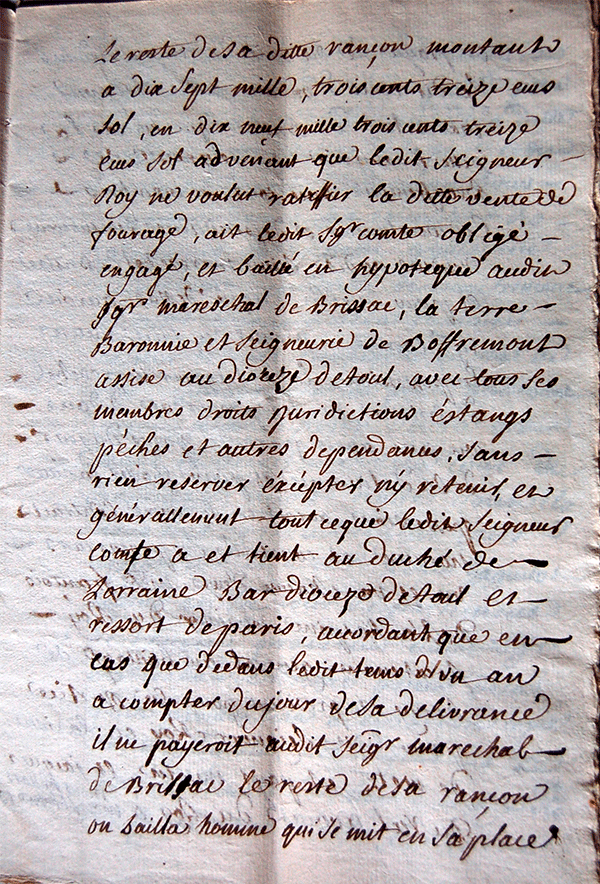 Le reste de sa ditte rançon montant
a dix sept mille, trois cents treize ecus
sol, en dix neuf mille trois cents treize
ecus sol advenant que ledit Seigneur
Roy ne voulut ratiffier la ditte vente de
fourage, ait ledit sgr comte obligé
engagé, et baillé en hypoteque audit
sgr mareschal de Brissac, la terre
Baronnie et Seigneurie de Boffremont
assise au dioceze de toul, avec tous ses
membres droits Juridictions éstangs
péches et autres dependances, Sans
rien reserver éxcépter n'y retenir, et
généralleme­nt tout ce que ledit Seigneur
comte a et tient au duché de
Lorraine Bar dioceze de toul et
ressort de paris, accordant que en
cas que dedans ledit tems d'un an
a compter du jour de sa délivrance
il ne payeroit audit seigr marechal
de Brissac le reste de sa rançon
ou bailla homme qui se mit en sa place